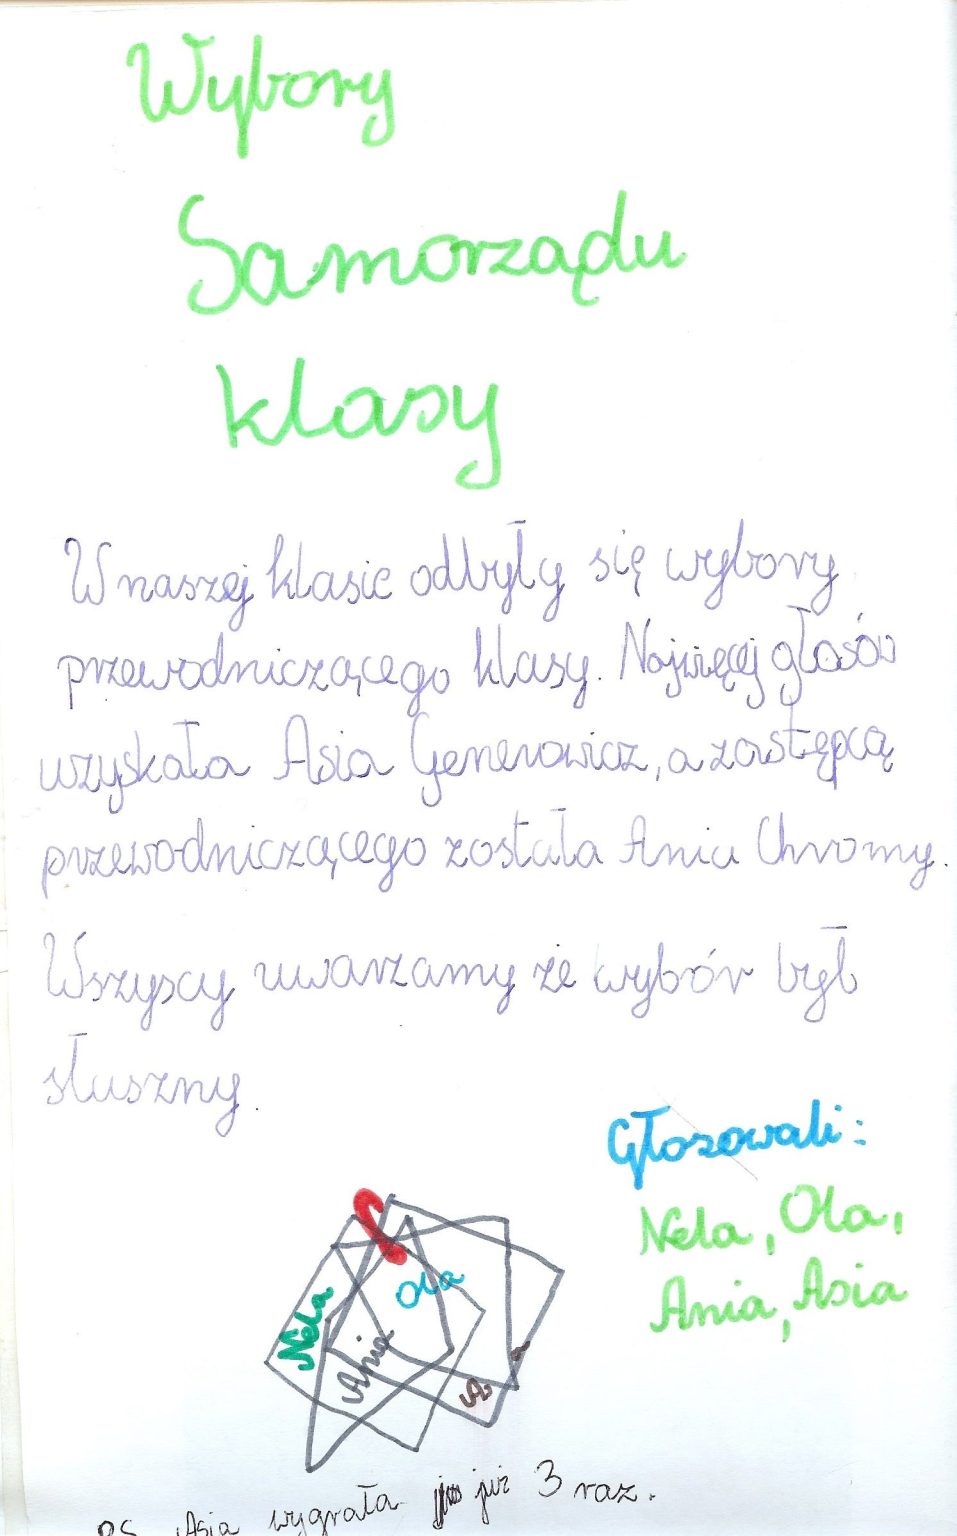 Wybory
Samorządu
klasy
W naszej klasie odbyły się wybory
przewodniczącego klasy. Najwięcej głosów
uzyskała Asia Generowicz, a zastępcą
przewodniczącego została Ania Chromy.
Wszyscy uwarzamy że wybór był
słuszny.
Głosowali:
Nela, Ola,
Ania, Asia
Ola
Nela
Ania
A
PS. Asia wygrała już 3 raz.